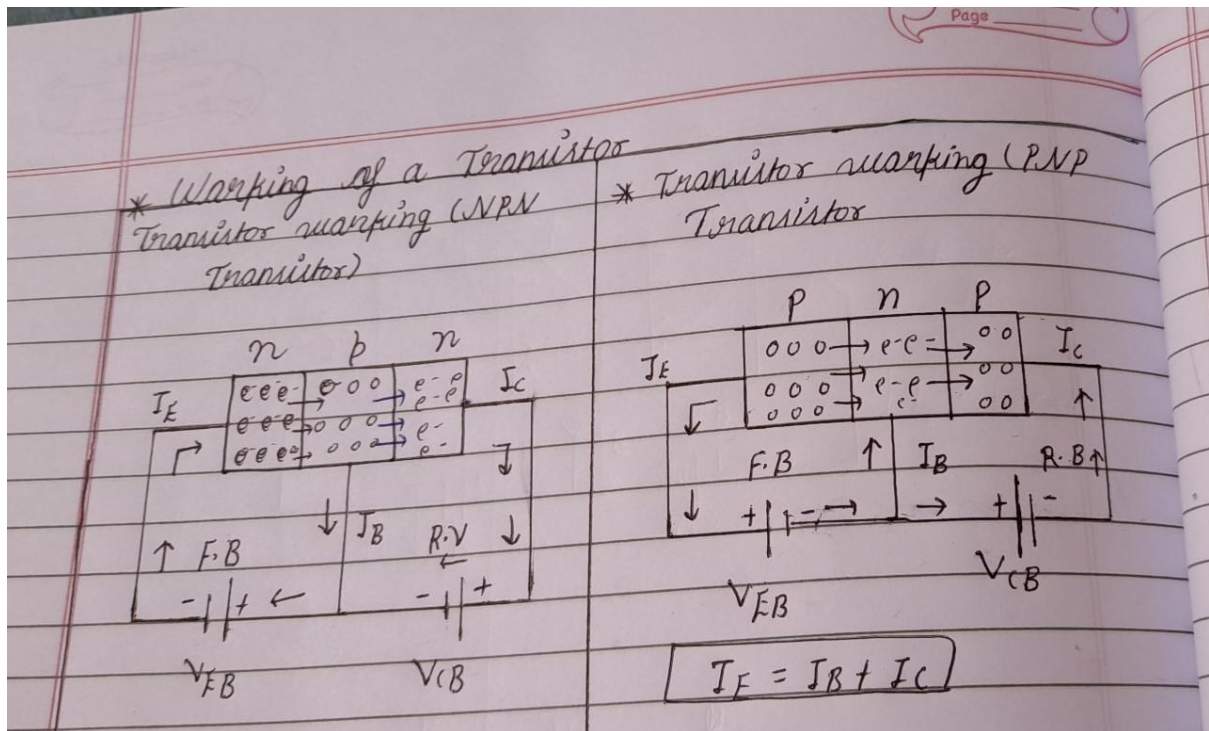 Page
* Working of a Transistor
Transistor working (NPN
Transistor)
n p n
I_E
e e e- e o o e- e
e- e
I_C
e e e- o o o e-
e e e o o o e-
I_B
F.B
R.V
- + ←
- +
V_EB
V_CB
* Transistor working (PNP
Transistor
P n P
I_E
o o o e- e- o o
I_C
o o o e- e o o
o o o e- o o
F.B
I_B
R.B
+ -
+ -
V_EB
V_CB
I_E = I_B + I_C